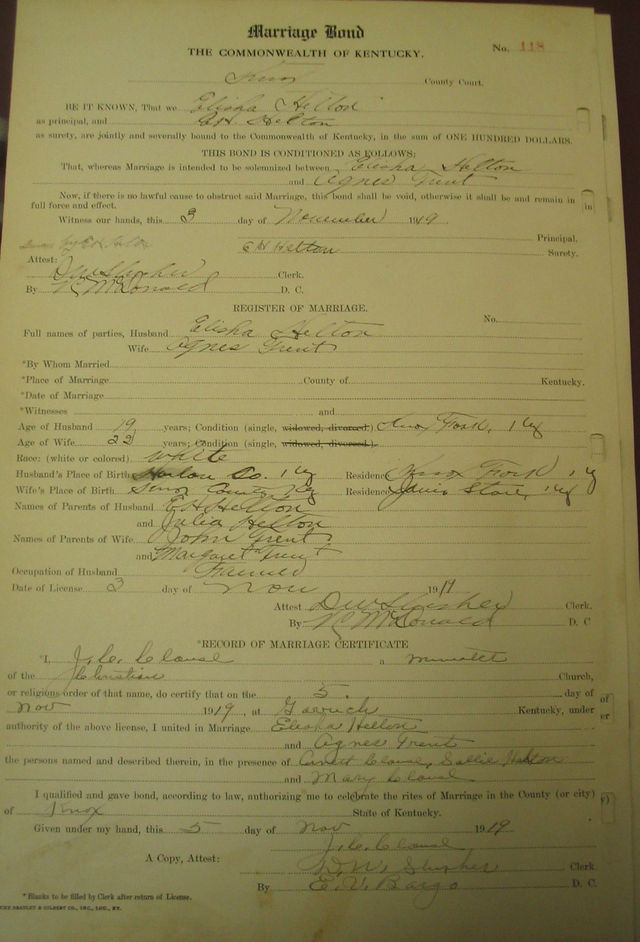 Marriage Bond
THE COMMONWEALTH OF KENTUCKY.
No. 118
Knox County Court.
BE IT KNOWN, That we Elisha Helton
as principal, and E.H. Helton
as surety, are jointly and severally bound to the Commonwealth of Kentucky, in the sum of ONE HUNDRED DOLLARS.
THIS BOND IS CONDITIONED AS FOLLOWS:
That, whereas Marriage is intended to be solemnized between Elisha Helton
and Agnes Trent
Now, if there is no lawful cause to obstruct said Marriage, this bond shall be void, otherwise it shall be and remain in
full force and effect.
Witness our hands, this 3 day of November 1919
by E H Helton Principal.
E H Helton Surety.
Attest:
D W Slusher Clerk.
By McDonald D. C.
REGISTER OF MARRIAGE.
No.
Full names of parties, Husband Elisha Helton
Wife Agnes Trent
*By Whom Married
*Place of Marriage County of Kentucky.
*Date of Marriage
*Witnesses and
Age of Husband 19 years; Condition (single, widowed, divorced.) Knox Fork, Ky
Age of Wife 22 years; Condition (single, widowed, divorced.)
Race: (white or colored) White
Husband's Place of Birth Harlan Co. Ky Residence Knox Fork Ky
Wife's Place of Birth Knox County Ky Residence Store, Ky
Names of Parents of Husband E H Helton
and Julia Helton
Names of Parents of Wife John Trent
and Margaret Trent
Occupation of Husband Farmer
Date of License 3 day of Nov 1919
Attest D W Slusher Clerk.
By McDonald D. C
*RECORD OF MARRIAGE CERTIFICATE
*I, J. C. Clouse a minister
of the Christian Church,
or religious order of that name, do certify that on the 5. day of
Nov 1919, at Kentucky, under
authority of the above license, I united in Marriage Elisha Helton
and Agnes Trent
the persons named and described therein, in the presence of Clouse, Sallie Helton
and Mary Clouse
I qualified and gave bond, according to law, authorizing me to celebrate the rites of Marriage in the County (or city)
of Knox State of Kentucky.
Given under my hand, this 5 day of Nov 1919.
J. C. Clouse
A Copy, Attest: D. W. Slusher Clerk.
By E. V. Bargo D. C.
*Blanks to be filled by Clerk after return of License.
BRADLEY & GILBERT CO., INC., LOU., KY.